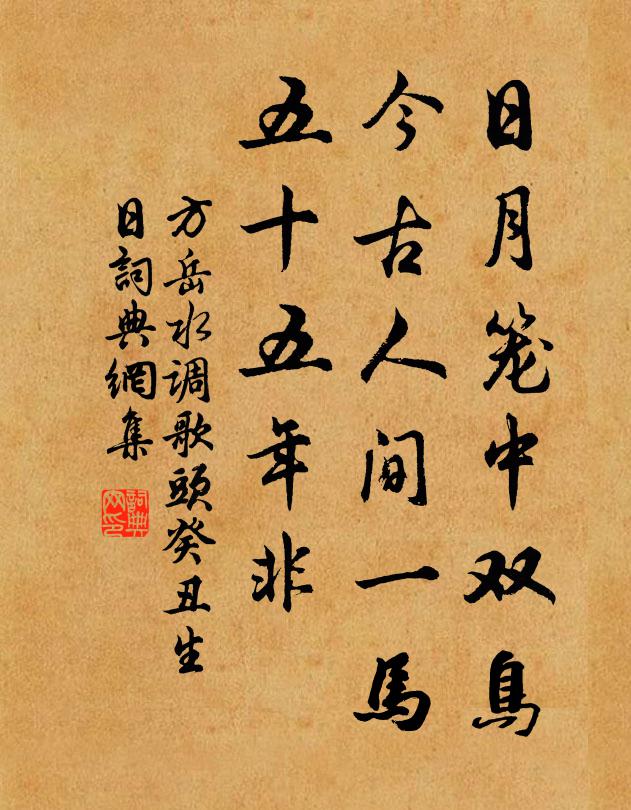 日月笼中双鳥
今古人间一馬
五十五年非
方岳水调歌頭癸丑生
日詞典網集
詞典网印